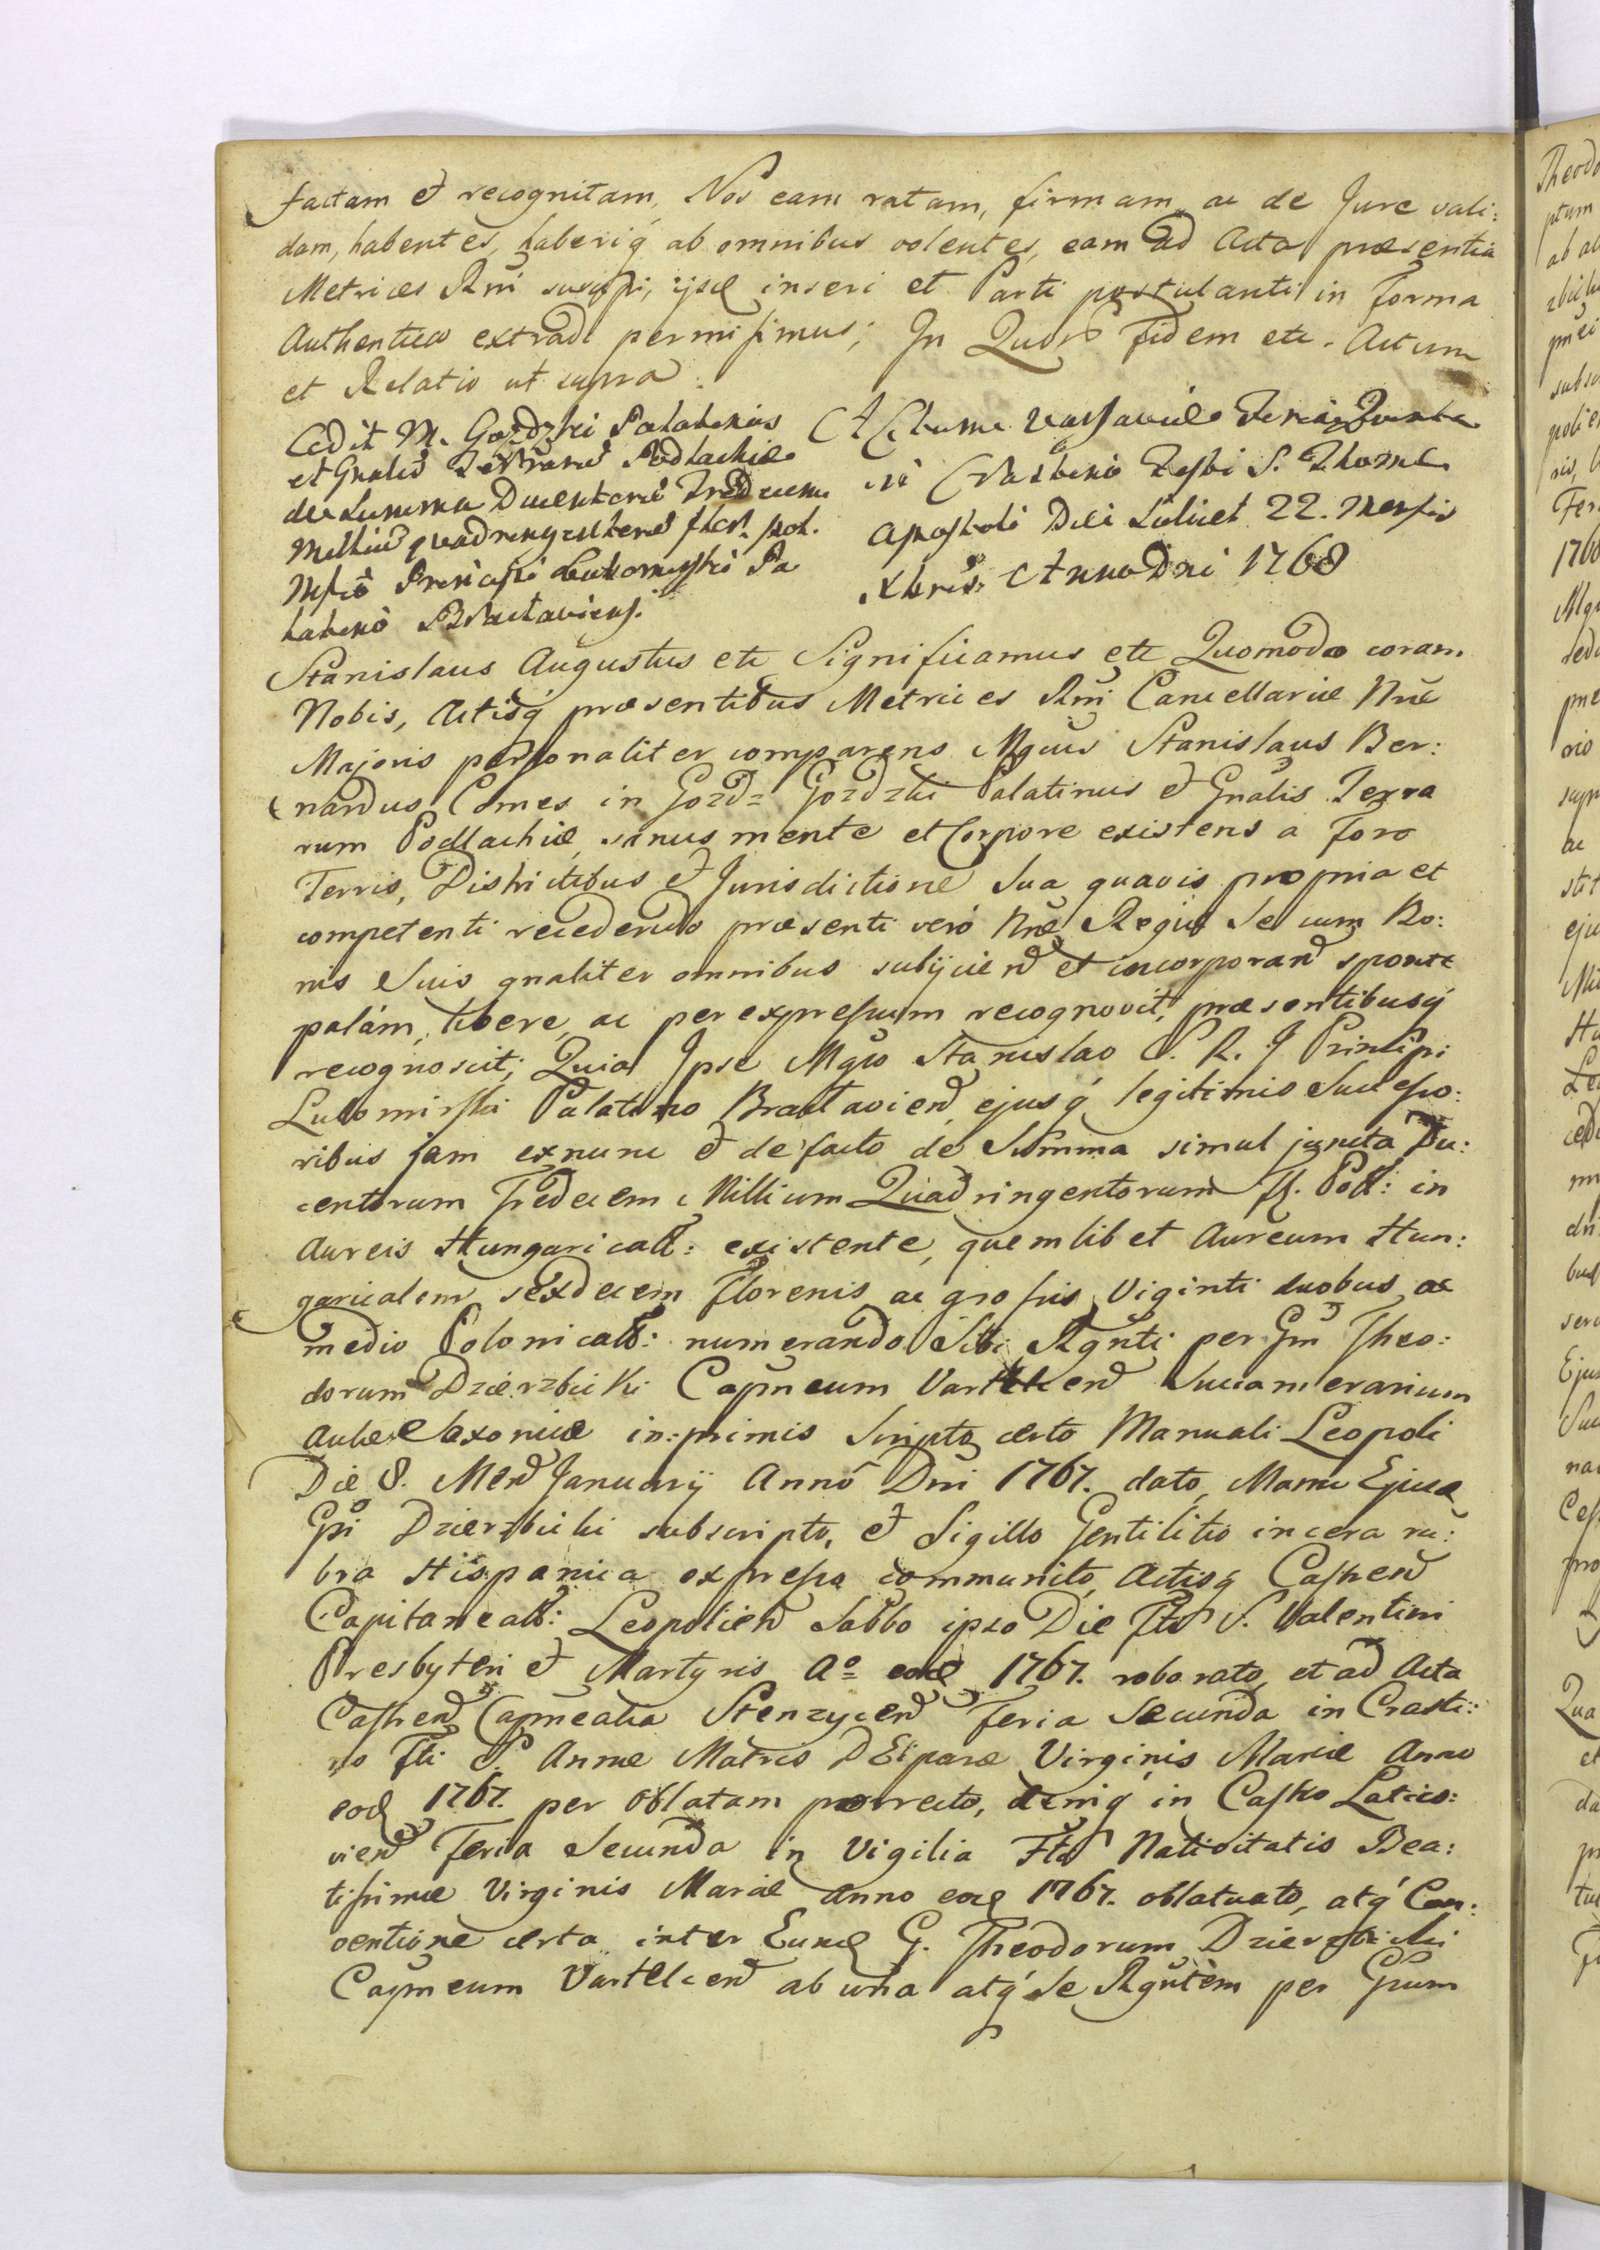 factam et recognitam, Nos eam ratam, firmam, ac de Jure vali:
dam, habentes, haberiq́ ab omnibus volentes, eam ad Acta præsentia
Metrices Rni suscipi, ijsđ inseri et Parti postulanti in forma
Authentica extradi permisimus; In Quor̃ fidem etc. Actum
et Relatio ut supra.
Cedit M. Gozdzki Palatinus
et Gnalis Terrarũ Podlachiæ
de Summa Ducentorũ Tredecim
Milliũ quadringentorũ flor. pol.
Mfco Principi Lubomirski Pa
latino Braclaviens.
Actum Varsaviæ Feria Quinta
in Crastino Festi S. Thomæ
Apostoli Diei Scilicet 22. Mensis
Xbris. Anno Dni 1768
Stanislaus Augustus etc Significamus etc Quomodo coram
Nobis, Actisq́ præsentibus Metrices Rni Cancellariæ Nræ
Majoris personaliter comparens Mgcus Stanislaus Ber:
nardus Comes in Gozd= Gozdzki Palatinus et Gnãlis Terra
rum Podlachiæ, sanus mente et Corpore existens a Foro
Terris, Districtibus et Jurisdictione Sua quavis propria et
competenti recedendo præsenti vero Nræ Regiæ Se cum Bo:
nis Suis gnaliter omnibus subijciend̃ et incorporand̃ sponte
palám, libere, ac per expressum recognovit, præsentibusq́
recognoscit; Quia Ipse Mgco Stanislao S. R. J Principi
Lubomirski Palatino Braclavien̄ ejusq́ legitimis Successo:
ribus jam exnunc et de facto de Summa simul juncta Du:
centorum Tredecim Millium Quadringentorum fl. Poll: in
Aureis Hungaricall: existente, quemlibet Aureum Hun:
garicalem sexdecim Florenis ac grossis Viginti duobus ac
medio Polonicall: numerando Sibi Rgñti per Gm̃ Theo:
dorum Dzierzbicki Capneum Vartelcen̄ Succamerarium
Aulæ Saxonicæ in:primis Scripto certo Manuali Leopoli
Die 8. Men̄ Januarij Annó Dni 1767. dato, Manu Ejusđ
Gsi Dzierzbicki subscripto, et Sigillo Gentilitio in cera ru:
bra Hispanica expresso communito, Actisq́ Castren̄
Capitaneall: Leopolien̄ Sabbo ipso Die Fti S. Valentini
Presbyteri et Martyris Aº= eođ 1767. roborato, et ad Acta
Castren̄ Capnealia Stenzycen̄ Feria Secunda in Crasti:
no Fti S. Annæ Matris DEiparæ Virginis Mariæ Anno
eođ 1767. per Oblatam porrecto, deniq́ in Castro Laticzo:
vien̄ Feria Secunda in Vigilia Fti Nativitatis Bea:
tissimæ Virginis Mariæ Anno eođ 1767. oblatuato, atq́ Con:
ventione certa inter Eund̄ G. Theodorum Dzierzbicki
Capneum Vartelcen̄ ab una atq́ Se Rgñtem per Gsum